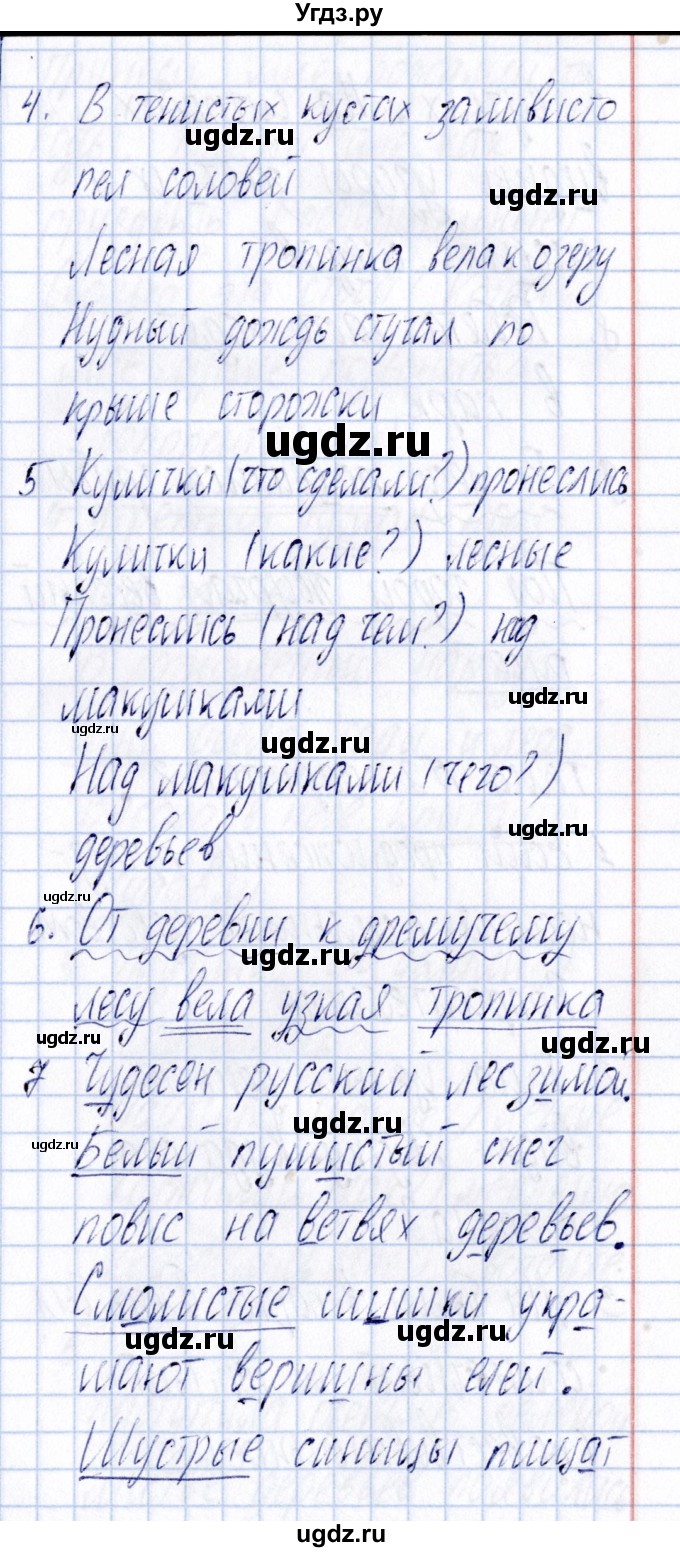 Угдз.ру
4. В тенистых кустах заливисто
ugdz.ru
пел соловей
ugdz.ru
Лесная тропинка вела к озеру
Нудный дождь стучал по
крыше сторожки
ugdz.ru
5 Кулички (что сделали?) пронеслись
Кулички (какие?) лесные
Пронеслись (над чем?) над
макушками
ugdz.ru
ugdz.ru
ugdz.ru
Над макушками (чего?)
ugdz.ru
деревьев
ugdz.ru
6. От деревни к дремучему
ugdz.ru
лесу вела узкая тропинка
ugdz.ru
ugdz.ru
7 Чудесен русский лес зимой.
ugdz.ru
ugdz.ru
Белый пушистый снег
повис на ветвях деревьев.
Смолистые шишки укра-
ugdz.ru
ugdz.ru
шают вершины елей.
Шустрые синицы пищат
ugdz.ru